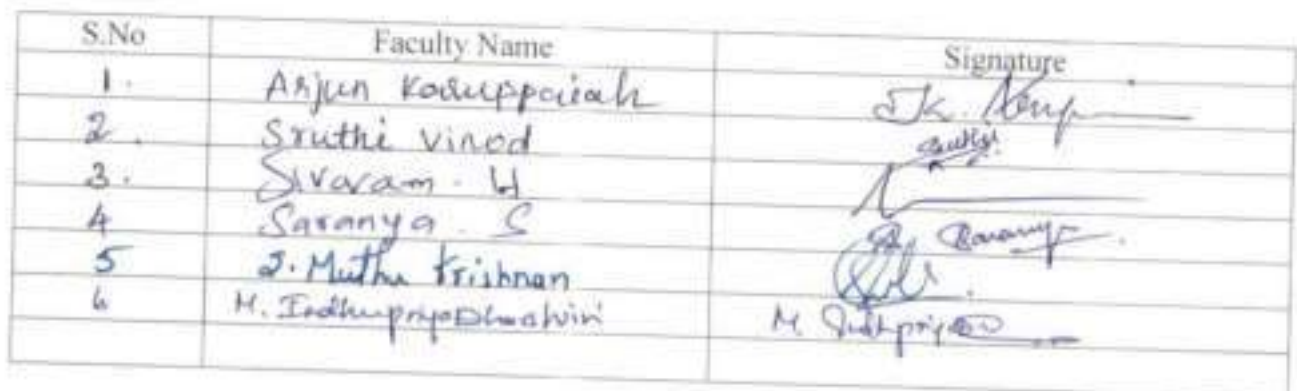 S.No Faculty Name Signature
1. Arjun Karuppaiah
2. Sruthi Vinod Sruthi
3. Sivaram. H
4 Saranya. S Saranya
5 J. Muthu Krishnan
6 M. Indhupriya Dharshini M. Indhupriya